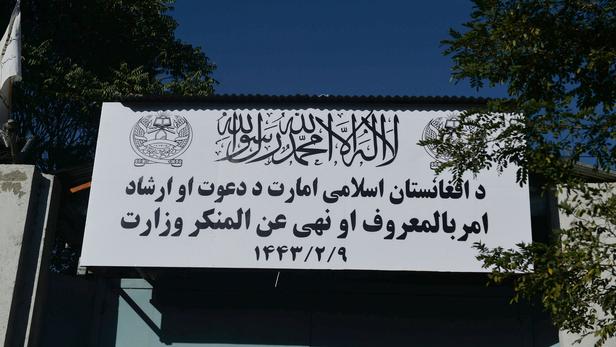 لا إله إلا الله محمد رسول الله
د افغانستان اسلامی امارت د دعوت او ارشاد
امربالمعروف او نهی عن المنکر وزارت
۱۴۴۳/۲/۹